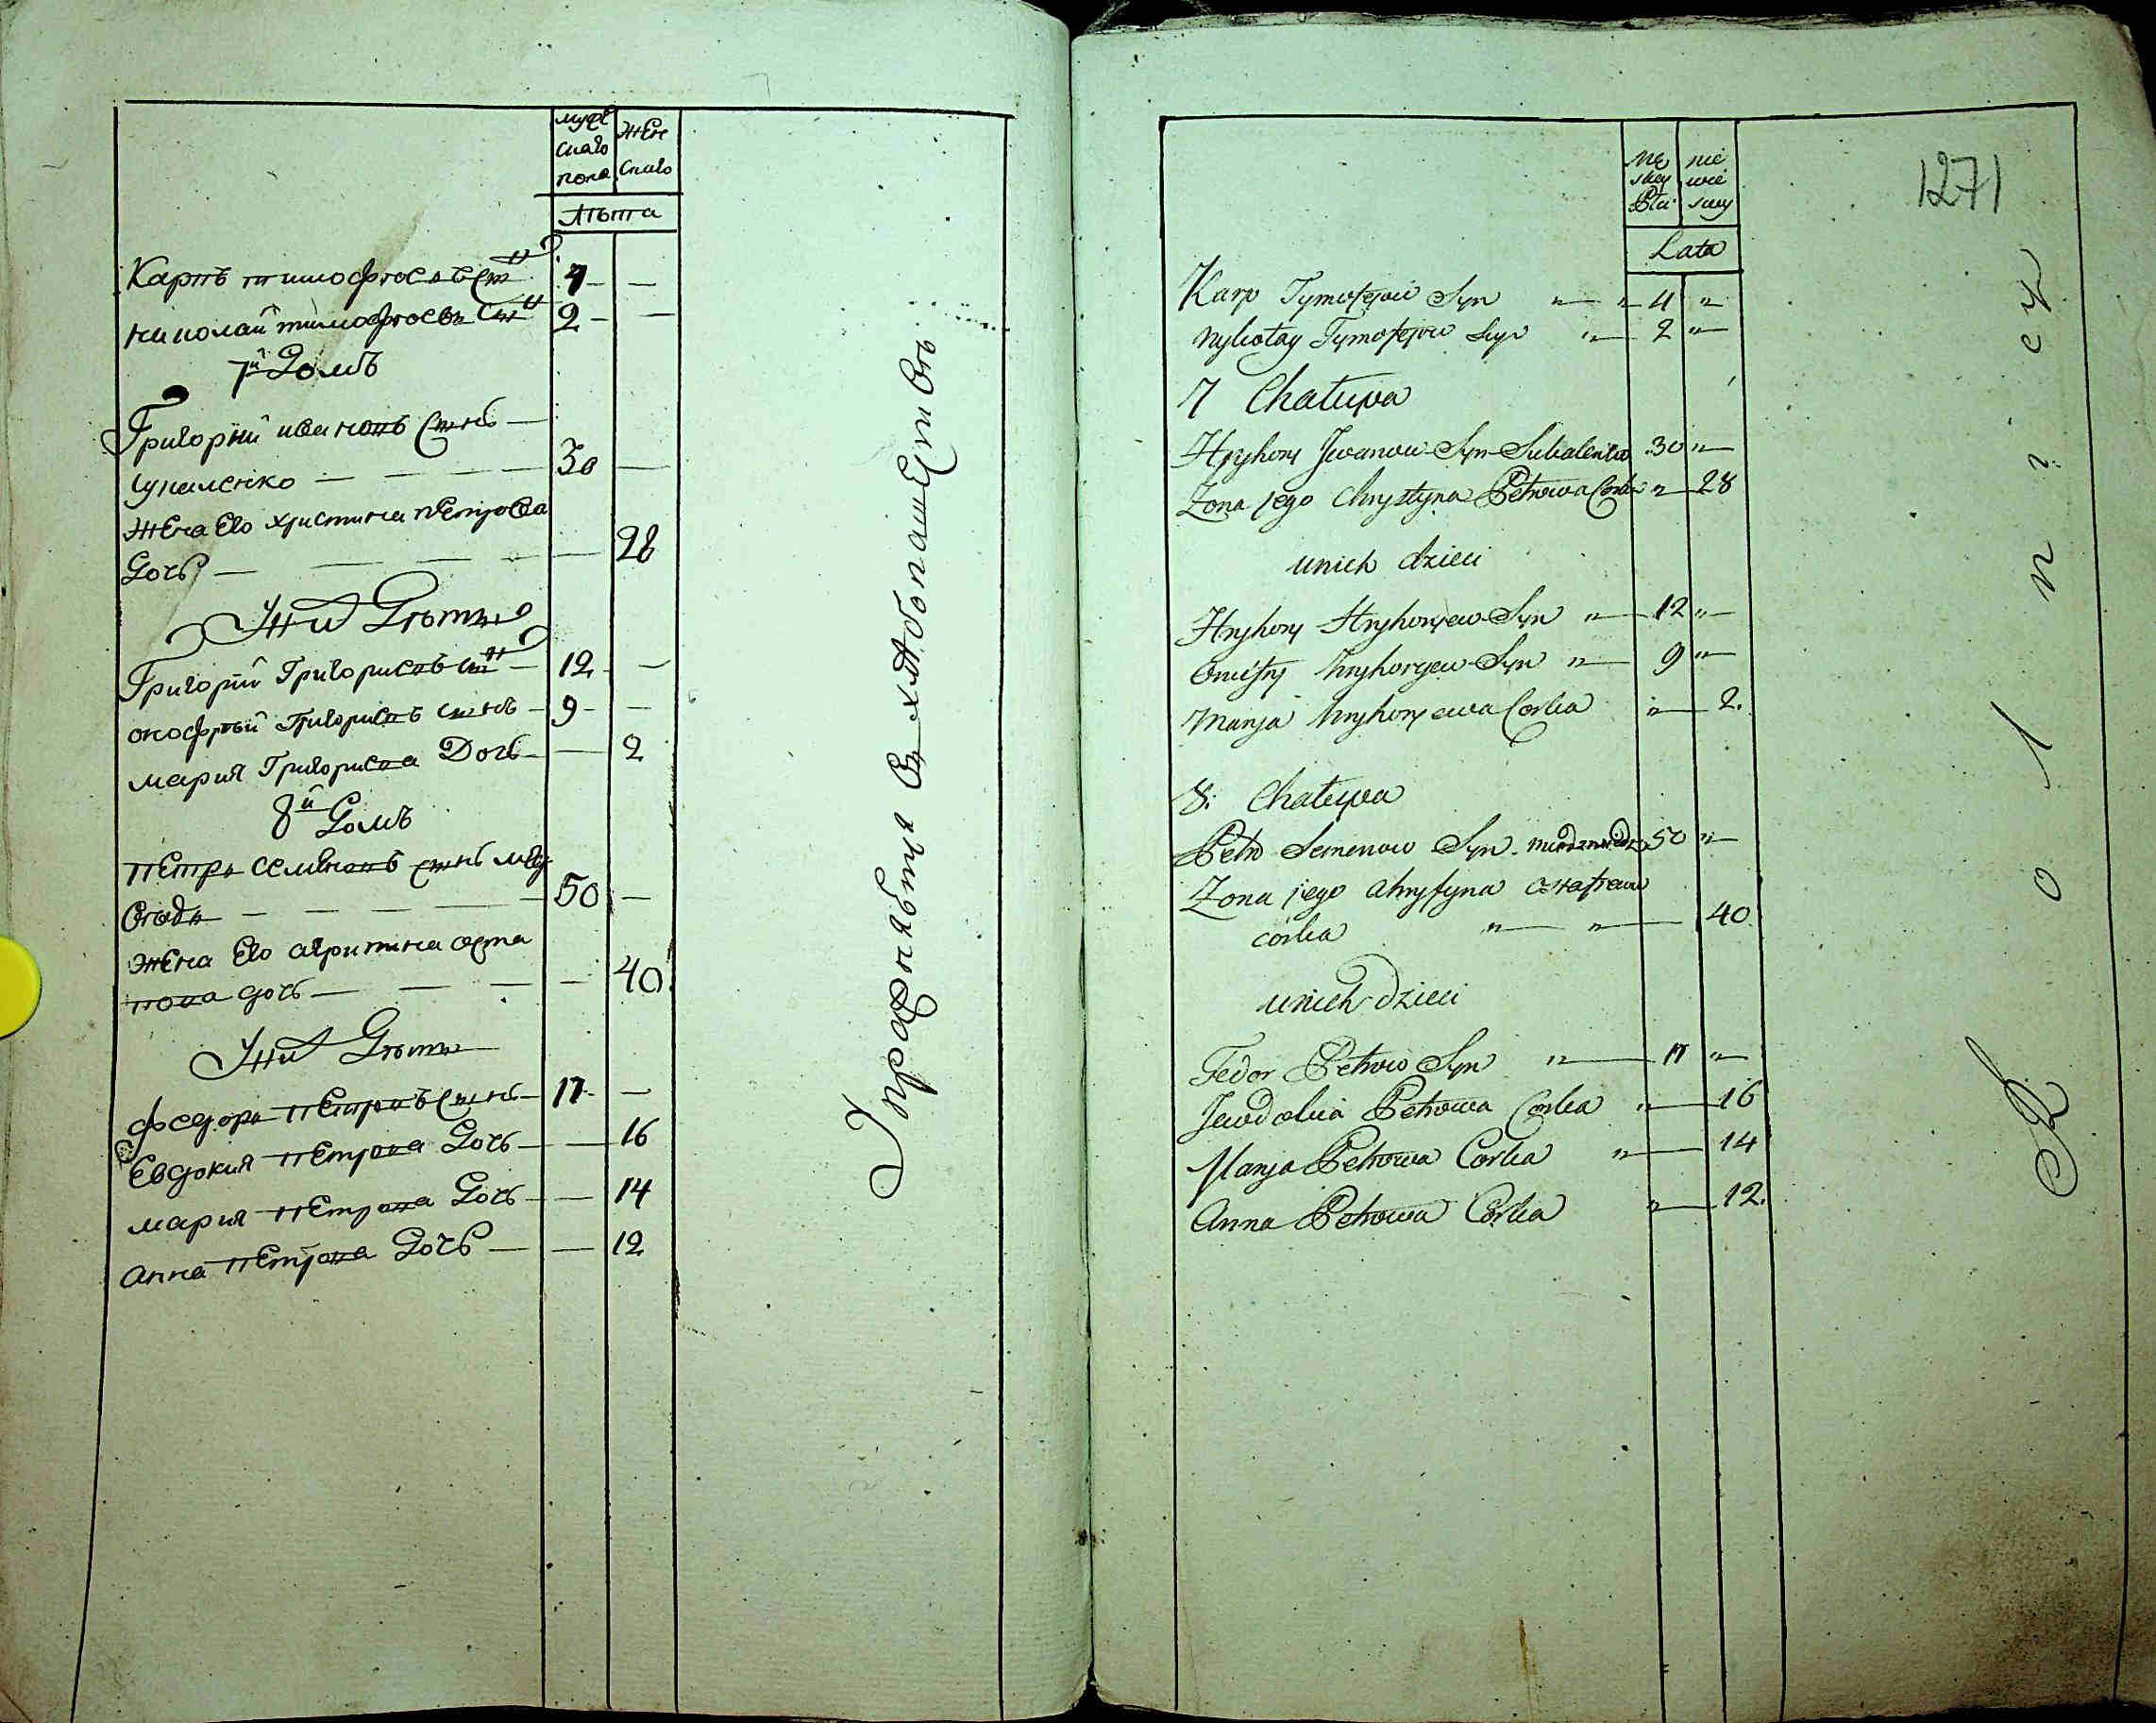 мужескаго пола
женскаго
лѣта
Карпъ тимофѣевъ сынъ 4 — —
николай тимофѣевъ сынъ 2 — —
7й Домъ
Григорий ивановъ сынъ —
30 —
жена Его христина петрова
Дочь — — — — — 28
У них Дѣти
Григорий Григориевъ сынъ — 12 — —
онофрий Григориевъ сынъ — 9 — —
мария Григориева Дочь — — 2
8й Домъ
петръ семеновъ сынъ
— — — — 50 —
жена Его
дочь — — — — 40
У них Дѣти
федоръ петровъ сынъ — 17 — —
Евдокия петрова Дочь — — 16
мария петрова Дочь — — 14
анна петрова Дочь — — 12
Упражняются въ хлѣбопашествѣ
męskey płci
niewieskey
Lata
1271
Karp Tymofejow Syn " — " 4 "
Mykołay Tymofejow Syn " — 2 "
7 Chałupa
Hryhory Jwanow Syn 30 " —
Zona jego Chrystyna Petrowa Corka " — 28
unich dzieci
Hryhory Hryhoryew Syn " — 12 " —
Onufry Hryhoryew Syn " — 9 " —
Marya Hryhoryewa Corka " — 2.
8. Chałupa
Petro Semenow Syn 50 " —
Zona jego
córka " — " — 40
unich dzieci
Fedor Petrow Syn " — 17 " —
Jewdokia Petrowa Corka " — 16
Marya Petrowa Corka " — 14
Anna Petrowa Corka " — 12.
Rolnicy